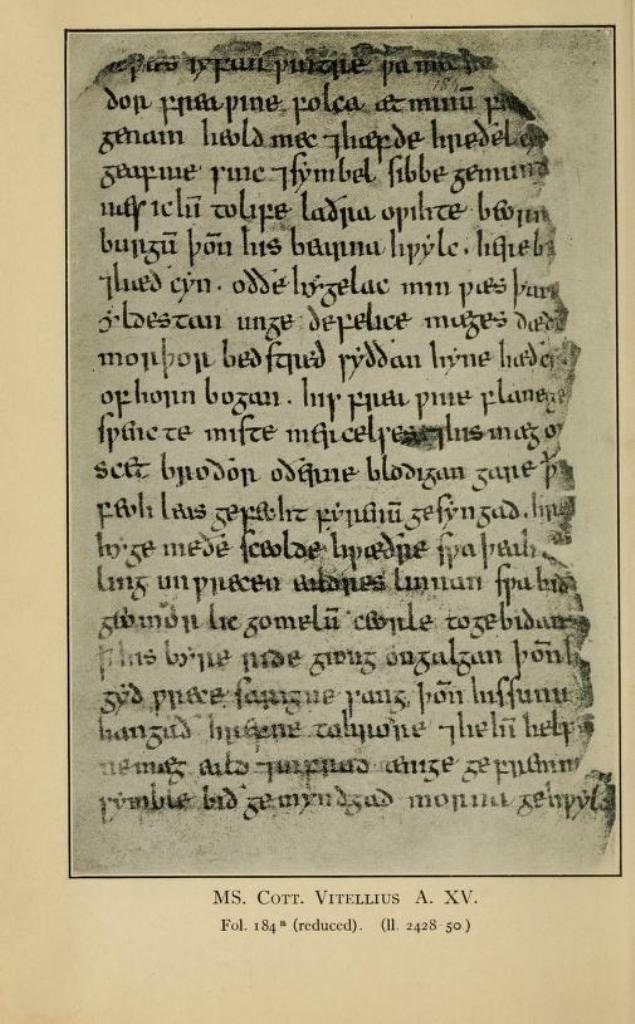 ƿæs syfan ƿintre þa mec
dor freaƿine folca æt minū fæ
genam heold mec ⁊hæfde hreðel
geaf me sinc ⁊symbel sibbe gemunde
næs ic hī tolife laðra oƿihte beorn
burgū þoñ his bearna hƿylc. hereb
⁊hæð cyn. oððe hygelac min ƿæs þam
yldestan unge defelice mæges dædū
morþor bed stred syððan hyne hæðc
of horn bogan. his frea ƿine flane ge
sƿenc te miste mercelses ⁊his mæg of
scet broðor oðerne blodigan gare ꝥ
feoh leas gefeoht fyrenū gesyngad. hre
hyge meðe sceolde hƿæðre sƿa þeah
ling unƿrecen ealdres linnan sƿa bið
geomor lic gomelū ceorle togebidan
ꝥ his byre ride giong ongalgan þoñ h
gyd ƿrece sarigne sang þoñ hissunu
hangað hrefne tohroðre ⁊he hī helpe
ne mæg eald ⁊infrod ænige gefremm
symble bið ge myndgad morna gehƿyl
MS. COTT. VITELLIUS A. XV.
Fol. 184ᵃ (reduced). (ll. 2428-50)